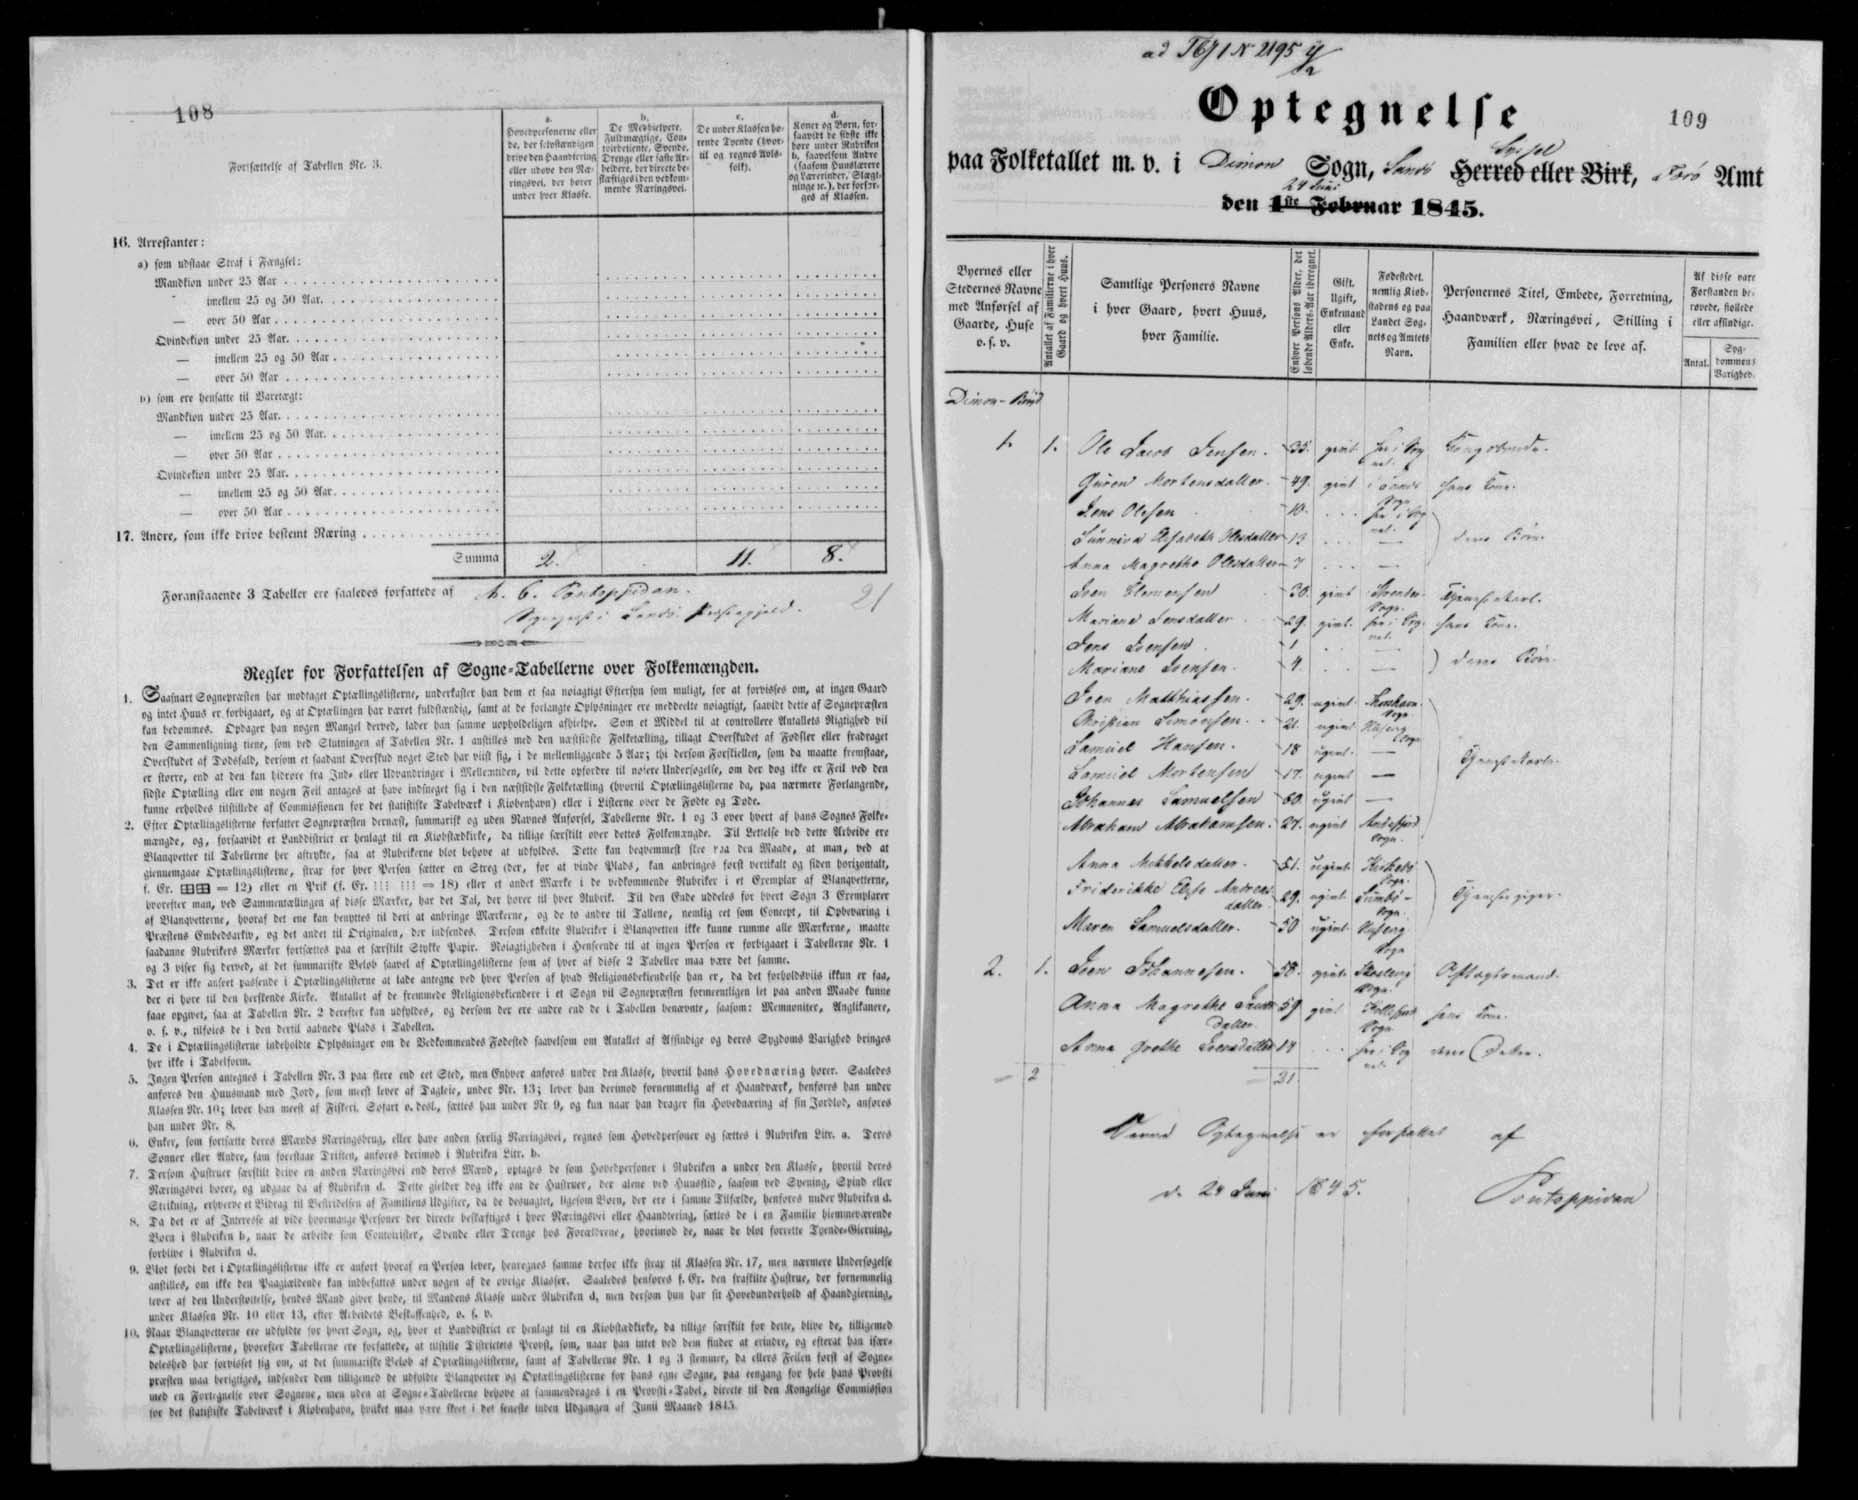 108
Fortsættelse af Tabellen Nr. 3.
a.
Hovedpersonerne eller
de, der selvstændigen
drive den Haandtering
eller udøve den Næ-
ringsvei, der hører
under hver Klasse.
b.
De Medhielpere,
Fuldmægtige, Con-
toirbetiente, Svende,
Drenge eller faste Ar-
beidere, der directe be-
skæftiges i den vedkom-
mende Næringsvei.
c.
De under Klassen hø-
rende Tyende (hvor-
til og regnes Avls-
folk).
d.
Koner og Børn, for-
saavidt de sidste ikke
høre under Rubriken
b, saavelsom Andre
(saasom Huuslærere
og Lærerinder, Slægt-
ninge ic.), der forsør-
ges af Klassen.
16. Arrestanter:
a) som udstaae Straf i Fængsel:
Mandkiøn under 25 Aar
— imellem 25 og 50 Aar.
— over 50 Aar
Qvindekiøn under 25 Aar.
— imellem 25 og 50 Aar
— over 50 Aar
b) som ere hensatte til Varetægt:
Mandkiøn under 25 Aar.
— imellem 25 og 50 Aar.
— over 50 Aar
Qvindekiøn under 25 Aar.
— imellem 25 og 50 Aar.
— over 50 Aar
17. Andre, som ikke drive bestemt Næring
Summa 2. 11. 8.
Foranstaaende 3 Tabeller ere saaledes forfattede af A. C. Pontoppidan.
Sognepræst i Sandø Præstegjeld. 21
Regler for Forfattelsen af Sogne-Tabellerne over Folkemængden.
1. Saasnart Sognepræsten har modtaget Optællingslisterne, underkaster han dem et saa nøiagtigt Eftersyn som muligt, for at forvisses om, at ingen Gaard
og intet Huus er forbigaaet, og at Optællingen har været fuldstændig, samt at de forlangte Oplysninger ere meddeelte nøiagtigt, saavidt dette af Sognepræsten
kan bedømmes. Opdager han nogen Mangel derved, lader han samme uopholdeligen afhielpe. Som et Middel til at controllere Antallets Rigtighed vil
den Sammenligning tiene, som ved Slutningen af Tabellen Nr. 1 anstilles med den næstsidste Folketælling, tillagt Overskudet af Fødsler eller fradraget
Overskudet af Dødsfald, dersom et saadant Overskud noget Sted har viist sig, i de mellemliggende 5 Aar; thi dersom Forskiellen, som da maatte fremstaae,
er større, end at den kan hidrøre fra Ind- eller Udvandringer i Mellemtiden, vil dette opfordre til nøiere Undersøgelse, om der dog ikke er Feil ved den
sidste Optælling eller om nogen Feil antages at have indsneget sig i den næstsidste Folketælling (hvortil Optællingslisterne da, paa nærmere Forlangende,
kunne erholdes tilstillede af Commissionen for det statistiske Tabelværk i Kiøbenhavn) eller i Listerne over de Fødte og Døde.
2. Efter Optællingslisterne forfatter Sognepræsten dernæst, summarisk og uden Navnes Anførsel, Tabellerne Nr. 1 og 3 over hvert af hans Sognes Folke-
mængde, og, forsaavidt et Landdistrict er henlagt til en Kiøbstædkirke, da tillige særskilt over dettes Folkemængde. Til Lettelse ved dette Arbeide ere
Blanqvetter til Tabellerne her aftrykte, saa at Rubrikerne blot behøve at udfyldes. Dette kan beqvemmest skee paa den Maade, at man, ved at
giennemgaae Optællingslisterne, strax for hver Person sætter en Streg (der, for at vinde Plads, kan anbringes først vertikalt og siden horizontalt,
f. Ex. = 12) eller en Prik (f. Ex. = 18) eller et andet Mærke i de vedkommende Rubriker i et Exemplar af Blanqvetterne,
hvorefter man, ved Sammentællingen af disse Mærker, har det Tal, der hører til hver Rubrik. Til den Ende uddeles for hvert Sogn 3 Exemplarer
af Blanqvetterne, hvoraf det ene kan benyttes til deri at anbringe Mærkerne, og de to andre til Tallene, nemlig eet som Concept, til Opbevaring i
Præstens Embedsarkiv, og det andet til Originalen, der indsendes. Dersom enkelte Rubriker i Blanqvetten ikke kunne rumme alle Mærkerne, maatte
saadanne Rubrikers Mærker fortsættes paa et særskilt Stykke Papir. Nøiagtigheden i Henseende til at ingen Person er forbigaaet i Tabellerne Nr. 1
og 3 viser sig derved, at det summariske Beløb saavel af Optællingslisterne som af hver af disse 2 Tabeller maa være det samme.
3. Det er ikke anseet passende i Optællingslisterne at lade antegne ved hver Person af hvad Religionsbekiendelse han er, da det forholdsviis ikkun er faa,
der ei høre til den herskende Kirke. Antallet af de fremmede Religionsbekiendere i et Sogn vil Sognepræsten formeentligen let paa anden Maade kunne
faae opgivet, saa at Tabellen Nr. 2 derefter kan udfyldes, og dersom der ere andre end de i Tabellen benævnte, saasom: Mennoniter, Anglikanere,
o. s. v., tilføies de i den dertil aabnede Plads i Tabellen.
4. De i Optællingslisterne indeholdte Oplysninger om de Vedkommendes Fødested saavelsom om Antallet af Afsindige og deres Sygdoms Varighed bringes
her ikke i Tabelform.
5. Ingen Person antegnes i Tabellen Nr. 3 paa flere end eet Sted, men Enhver anføres under den Klasse, hvortil hans Hovednæring hører. Saaledes
anføres den Huusmand med Jord, som meest lever af Dagleie, under Nr. 13; lever han derimod fornemmelig af et Haandværk, henføres han under
Klassen Nr. 10; lever han meest af Fiskeri, Søfart o. desl., sættes han under Nr 9, og kun naar han drager sin Hovednæring af sin Jordlod, anføres
han under Nr. 8.
6. Enker, som fortsætte deres Mænds Næringsbrug, eller have anden særlig Næringsvei, regnes som Hovedpersoner og sættes i Rubriken Litr. a. Deres
Sønner eller Andre, som forestaae Driften, anføres derimod i Rubriken Litr. b.
7. Dersom Hustruer særskilt drive en anden Næringsvei end deres Mænd, optages de som Hovedpersoner i Rubriken a under den Klasse, hvortil deres
Næringsvei hører, og udgaae da af Rubriken d. Dette gielder dog ikke om de Hustruer, der alene ved Huusflid, saasom ved Syening, Spind eller
Strikning, erhverve et Bidrag til Bestridelsen af Familiens Udgifter, da de desuagtet, ligesom Børn, der ere i samme Tilfælde, henføres under Rubriken d.
8. Da det er af Interesse at vide hvormange Personer der directe beskæftiges i hver Næringsvei eller Haandtering, sættes de i en Familie hiemmeværende
Børn i Rubriken b, naar de arbeide som Contoirister, Svende eller Drenge hos Forældrene, hvorimod de, naar de blot forrette Tyende-Gierning,
forblive i Rubriken d.
9. Blot fordi det i Optællingslisterne ikke er anført hvoraf en Person lever, henregnes samme derfor ikke strax til Klassen Nr. 17, men nærmere Undersøgelse
anstilles, om ikke den Paagiældende kan indbefattes under nogen af de øvrige Klasser. Saaledes henføres f. Ex. den fraskilte Hustrue, der fornemmelig
lever af den Understøttelse, hendes Mand giver hende, til Mandens Klasse under Rubriken d, men dersom hun har sit Hovedunderhold af Haandgierning,
under Klassen Nr. 10 eller 13, efter Arbeidets Beskaffenhed, o. s. v.
10. Naar Blanqvetterne ere udfyldte for hvert Sogn, og, hvor et Landdistrict er henlagt til en Kiøbstædkirke, da tillige særskilt for dette, blive de, tilligemed
Optællingslisterne, hvorefter Tabellerne ere forfattede, at tilstille Districtets Provst, som, naar han intet ved dem finder at erindre, og efterat han især-
deleshed har forvisset sig om, at det summariske Beløb af Optællingslisterne, samt af Tabellerne Nr. 1 og 3 stemmer, da ellers Feilen først af Sogne-
præsten maa berigtiges, indsender dem tilligemed de udfyldte Blanqvetter og Optællingslisterne for hans egne Sogne, paa eengang for hele hans Provsti
med en Fortegnelse over Sognene, men uden at Sogne-Tabellerne behøve at sammendrages i en Provsti-Tabel, directe til den Kongelige Commission
for det statistiske Tabelværk i Kiøbenhavn, hvilket maa være skeet i det seneste inden Udgangen af Junii Maaned 1845.
ad N 2195
Optegnelse
109
paa Folketallet m. v. i Dimon Sogn, Sandø Herred eller Birk, Færø Amt
Syssel
24 Juni
den 1ste Februar 1845.
Byernes eller
Stedernes Navne
med Anførsel af
Gaarde, Huse
o. s. v.
Antallet af Familierne i hver
Gaard og hvert Huus.
Samtlige Personers Navne
i hver Gaard, hvert Huus,
hver Familie.
Enhver Persons Alder, det
løbende Alders-Aar iberegnet.
Gift,
Ugift,
Enkemand
eller
Enke.
Fødestedet,
nemlig Kiøb-
stadens og paa
Landet Sog-
nets og Amtets
Navn.
Personernes Titel, Embede, Forretning,
Haandværk, Næringsvei, Stilling i
Familien eller hvad de leve af.
Af disse vare
Forstanden be-
røvede, fiollede
eller afsindige.
Antal.
Syg-
dommens
Varighed.
Dimon - Bøigd
1. 1. Ole Jacob Jensen. 35. givt her i Sognet Kongsbonde.
Guren Mortensdatter. 49. givt i Sogn hans Kone.
Jens Olesen 10. her i Sognet
Sunneva Elisabeth Olesdatter 13 — deres Børn.
Anna Magrethe Olesdatter 7 —
Joen Clemensen 30. givt Sogn. Tjenestekarl.
Mariane Jensdatter 29. givt. her i Sognet hans Kone.
Jens Joensen 1
Mariane Joensen. 4. — deres Børn.
Joen Matthiassen. 29. ugivt Sogn
Christian Simonsen. 21. ugivt Huseby Sogn
Samuel Hansen. 18 ugivt — Tjenestekarle.
Samuel Mortensen 17. ugivt —
Johannes Samuelsen 60. ugivt —
Abraham Abrahamsen. 27. ugivt Andefjord Sogn.
Anna Mikkelsdatter. 51. ugivt Sogn.
Friderikke Else Andreas
datter 29. ugivt Sumbø Sogn. Tjenestepiger.
Maren Samuelsdatter. 50 ugivt Sogn
2. 1. Joen Johannesen. 58. givt Sogn. Aftægtsmand.
Anna Magrethe
datter 59 givt Kollefjord Sogn hans Kone.
Anna Grethe Joensdatter 14 her i Sognet deres Datter.
2 21.
Denne Optegnelse er forfattet af
d. 24 Juni 1845. Pontoppidan